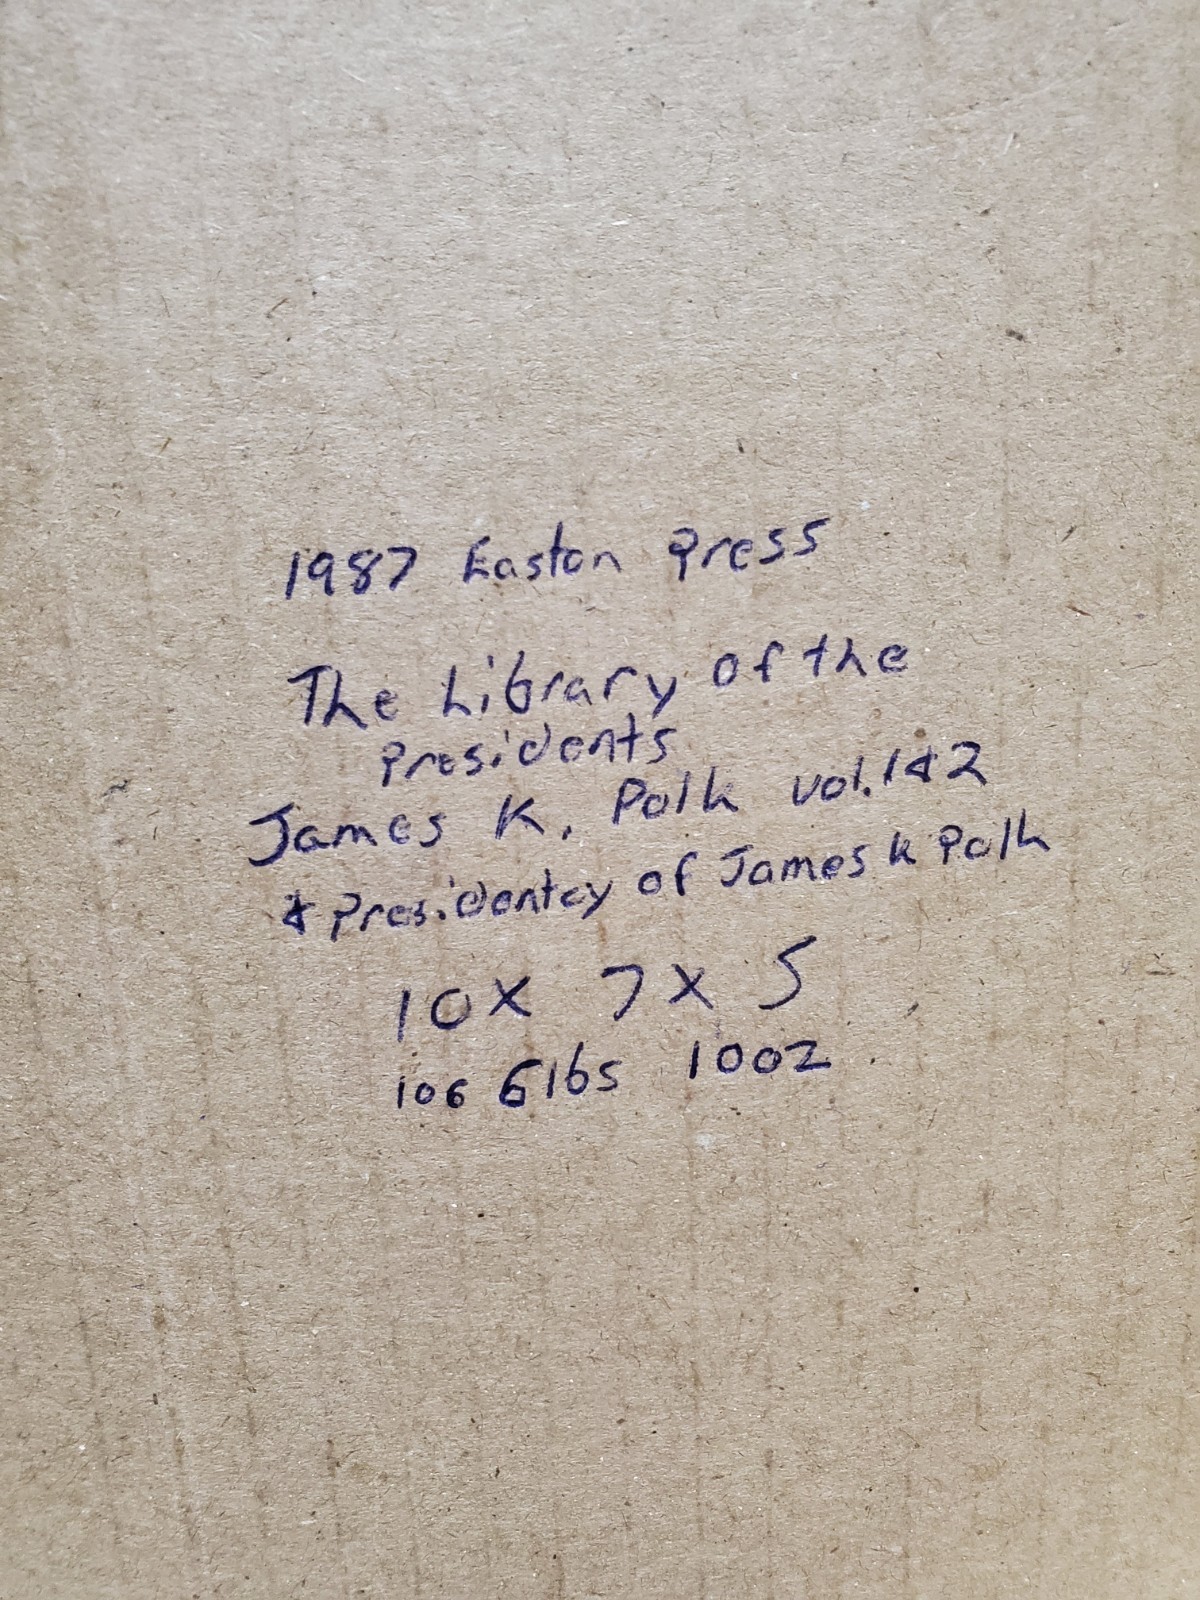 1987 Easton Press
The Library of the
Presidents
James K. Polk vol. 1 & 2
& Presidentcy of James k Polk
10 x 7 x 5
106 6lbs 10oz